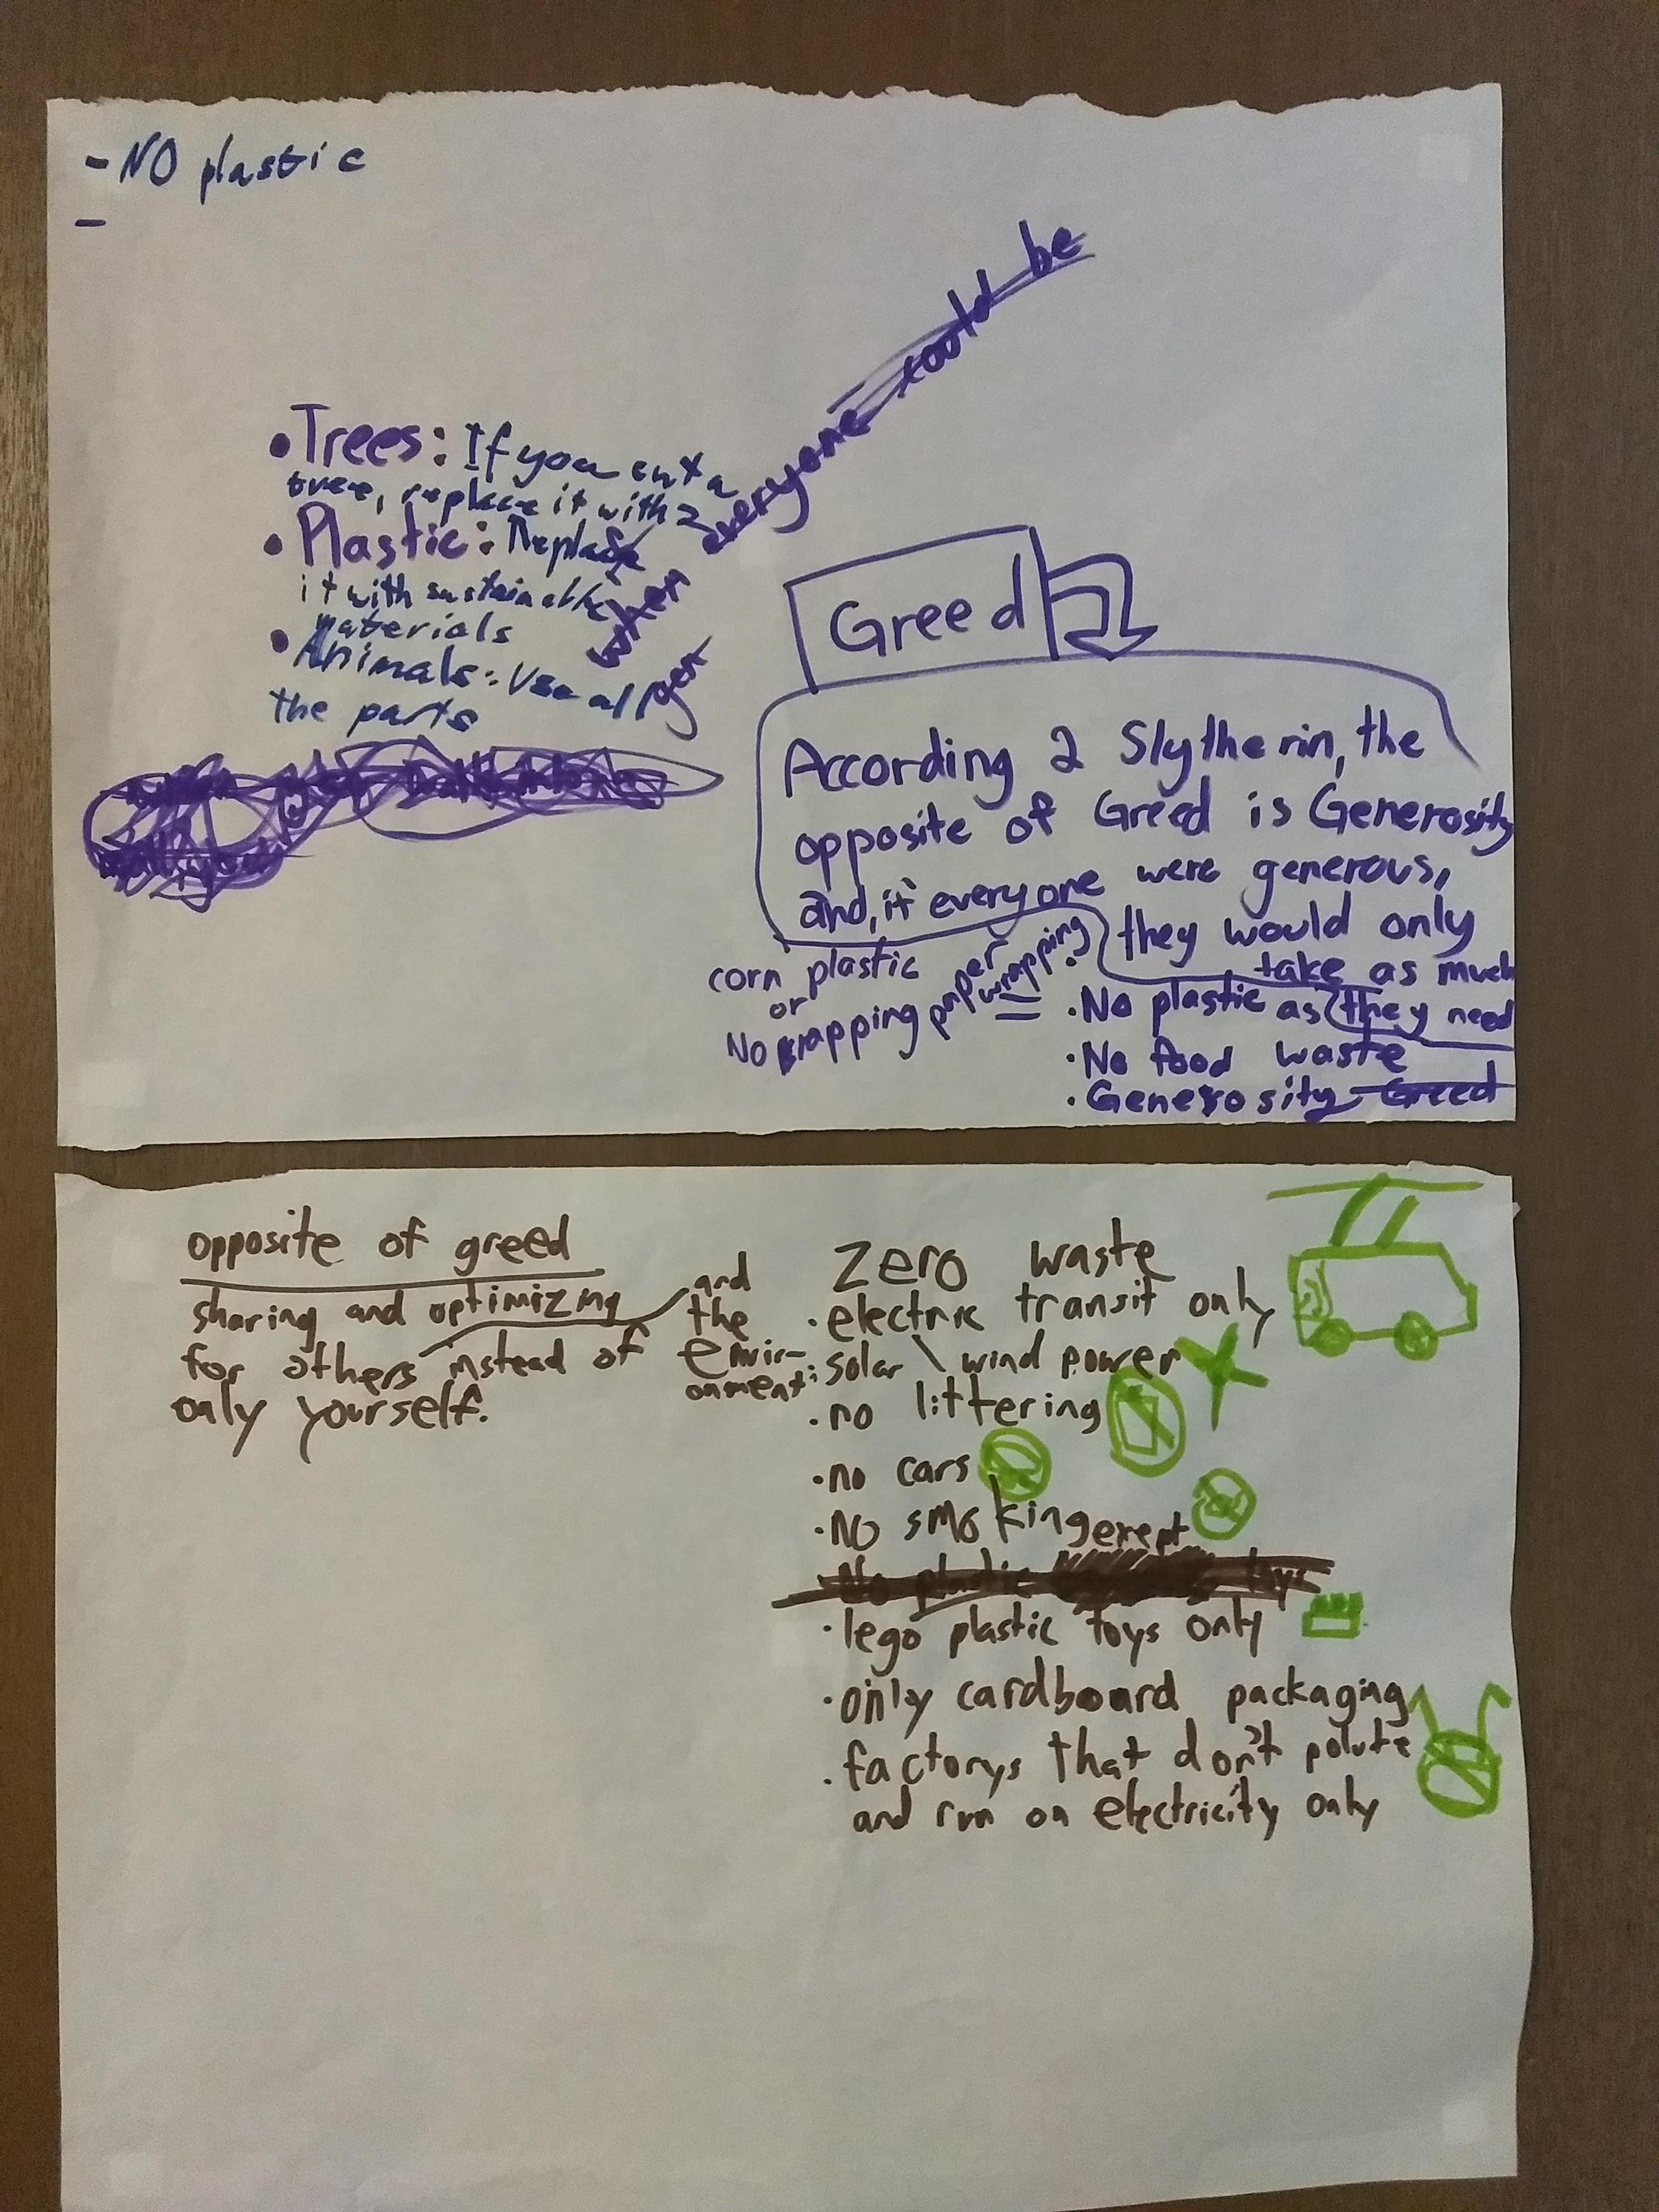 - NO plastic
-
everyone could be
• Trees: If you cut a
tree, replace it with 2
• Plastic: Replace
it with sustainable
materials
• Animals: Use all
the parts
when
get
Greed
According 2 Slytherin, the
opposite of Greed is Generosity
and, if everyone were generous,
they would only
take as much
as they need
corn plastic
or
No wrapping paper
wrapping?
=
• No plastic
• No food waste
• Generosity Greed
opposite of greed
sharing and optimizing
for others and the
envir-
onment
instead of
only yourself.
Zero waste
• electric transit only
• solar \ wind power
• no littering
• no cars
• NO smoking exept
• No plastic toys
• lego plastic toys only
• only cardboard packaging
• factorys that don't polute
and run on electricity only